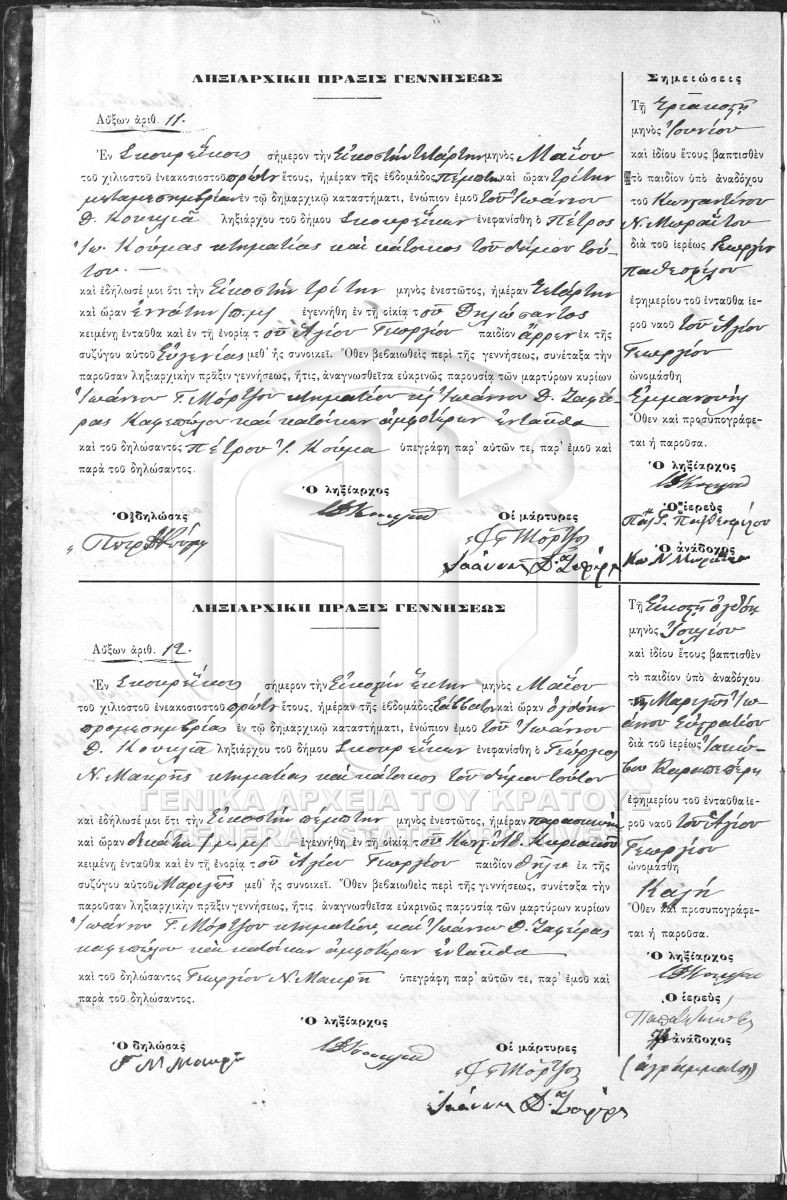 ΛΗΞΙΑΡΧΙΚΗ ΠΡΑΞΙΣ ΓΕΝΝΗΣΕΩΣ
Αὔξων ἀριθ. 11.
Ἐν Σκουρέϊκοις σήμερον τὴν Εἰκοστὴν τετάρτην μηνὸς Μαΐου
τοῦ χιλιοστοῦ ἐνεακοσιοστοῦ πρώτου ἔτους, ἡμέραν τῆς ἑβδομάδος πέμπτην καὶ ὥραν τρίτην
μεταμεσημβρίαν ἐν τῷ δημαρχικῷ καταστήματι, ἐνώπιον ἐμοῦ τοῦ Ἰωάννου
Δ. Κουκλιᾶ ληξιάρχου τοῦ δήμου Σκουρέϊκων ἐνεφανίσθη ὁ Πέτρος
Ἰω. Κούμας κτηματίας καὶ κάτοικος τοῦ δήμου τού-
του. —
καὶ ἐδήλωσέ μοι ὅτι τὴν Εἰκοστὴν τρίτην μηνὸς ἐνεστῶτος, ἡμέραν Τετάρτην
καὶ ὥραν ἐννάτην π.μ. ἐγεννήθη ἐν τῇ οἰκίᾳ τοῦ Δηλώσαντος
κειμένῃ ἐνταῦθα καὶ ἐν τῇ ἐνορίᾳ τοῦ Ἁγίου Γεωργίου παιδίον ἄρρεν ἐκ τῆς
συζύγου αὐτοῦ Εὐγενίας μεθ' ἧς συνοικεῖ. Ὅθεν βεβαιωθεὶς περὶ τῆς γεννήσεως, συνέταξα τὴν
παροῦσαν ληξιαρχικὴν πρᾶξιν γεννήσεως, ἥτις, ἀναγνωσθεῖσα εὐκρινῶς παρουσίᾳ τῶν μαρτύρων κυρίων
Ἰωάννου Γ. Μόρτζου κτηματίου καὶ Ἰωάννου Δ. Ζαφεί-
ρας καφεπώλου καὶ κατοίκων ἀμφοτέρων ἐνταῦθα
καὶ τοῦ δηλώσαντος Πέτρου Ἰ. Κούμα ὑπεγράφη παρ' αὐτῶν τε, παρ' ἐμοῦ καὶ
παρὰ τοῦ δηλώσαντος.
Ὁ ληξίαρχος
Ὁ δηλώσας
Οἱ μάρτυρες
Γ Μόρτζος
Ἰοάννης Δ.
Σημειώσεις
Τῇ Τριακοστῇ
μηνὸς Ἰουνίου
καὶ ἰδίου ἔτους βαπτισθὲν
τὸ παιδίον ὑπὸ ἀναδόχου
τοῦ Κωνσταντίνου
Ν. Μωραΐτου
διὰ τοῦ ἱερέως Γεωργίου
Παπᾶ
ἐφημερίου τοῦ ἐνταῦθα ἱε-
ροῦ ναοῦ τοῦ Ἁγίου
Γεωργίου
ὠνομάσθη
Ἐμμανουὴλ
Ὅθεν καὶ προσυπογράφε-
ται ἡ παροῦσα.
Ὁ ληξίαρχος
Ὁ ἱερεὺς
Ὁ ἀνάδοχος
Κω Ν Μωραΐτης
ΛΗΞΙΑΡΧΙΚΗ ΠΡΑΞΙΣ ΓΕΝΝΗΣΕΩΣ
Αὔξων ἀριθ. 12.
Ἐν Σκουρέϊκοις σήμερον τὴν Εἰκοστὴν ἕκτην μηνὸς Μαΐου
τοῦ χιλιοστοῦ ἐνεακοσιοστοῦ πρώτου ἔτους, ἡμέραν τῆς ἑβδομάδος Σάββατον καὶ ὥραν ὀγδόην
προμεσημβρίας ἐν τῷ δημαρχικῷ καταστήματι, ἐνώπιον ἐμοῦ τοῦ Ἰωάννου
Δ. Κουκλιᾶ ληξιάρχου τοῦ δήμου Σκουρέϊκων ἐνεφανίσθη ὁ Γεώργιος
Ν. Μακρῆς κτηματίας καὶ κάτοικος τοῦ δήμου τούτου
καὶ ἐδήλωσέ μοι ὅτι τὴν Εἰκοστὴν πέμπτην μηνὸς ἐνεστῶτος, ἡμέραν παρασκευὴν
καὶ ὥραν δεκάτην μ.μ. ἐγεννήθη ἐν τῇ οἰκίᾳ τοῦ Κωνστ. Ἀθ. Κυριακοῦ
κειμένῃ ἐνταῦθα καὶ ἐν τῇ ἐνορίᾳ τοῦ Ἁγίου Γεωργίου παιδίον θῆλυ ἐκ τῆς
συζύγου αὐτοῦ Μαριγῶς μεθ' ἧς συνοικεῖ. Ὅθεν βεβαιωθεὶς περὶ τῆς γιννήσεως, συνέταξα τὴν
παροῦσαν ληξιαρχικὴν πρᾶξιν γεννήσεως, ἥτις ἀναγνωσθεῖσα εὐκρινῶς παρουσίᾳ τῶν μαρτύρων κυρίων
Ἰωάννου Γ. Μόρτζου κτηματίου καὶ Ἰωάννου Δ. Ζαφείρας
καφεπώλου καὶ κατοίκων ἀμφοτέρων ἐνταῦθα
καὶ τοῦ δηλώσαντος Γεωργίου Ν. Μακρῆ ὑπεγράφη παρ' αὐτῶν τε, παρ' ἐμοῦ καὶ
παρὰ τοῦ δηλώσαντος.
Ὁ ληξίαρχος
Ὁ δηλώσας
Γ Ν Μακρῆς
Οἱ μάρτυρες
Γ Μόρτζος
Ἰοάννης Δ.
Τῇ Εἰκοστῇ ὀγδόῃ
μηνὸς Ἰουλίου
καὶ ἰδίου ἔτους βαπτισθὲν
τὸ παιδίον ὑπὸ ἀναδόχου
τῆς Μαριγῶς Ἰω-
άννου Εὐστρατίου
διὰ τοῦ ἱερέως Ἰακώ-
βου
ἐφημερίου τοῦ ἐνταῦθα ἱε-
ροῦ ναοῦ τοῦ Ἁγίου
Γεωργίου
ὠνομάσθη
Καλὴ
Ὅθεν καὶ προσυπογράφε-
ται ἡ παροῦσα.
Ὁ ληξίαρχος
Ὁ ἱερεὺς
Ἡ ἀνάδοχος
(ἀγράμματος)
ΓΕΝΙΚΑ ΑΡΧΕΙΑ ΤΟΥ ΚΡΑΤΟΥΣ
GENERAL STATE ARCHIVES